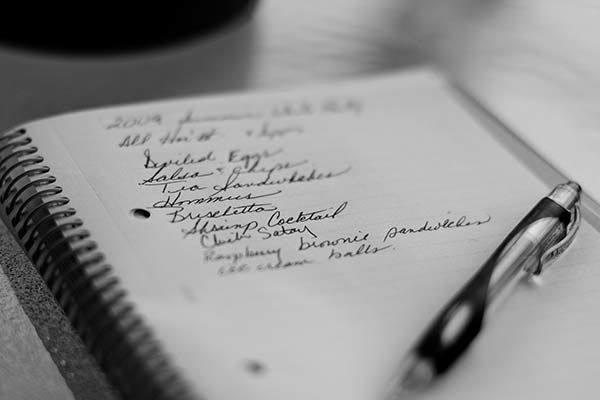 2009 Summer White Party
All Hors'
Deviled Eggs
Salsa & Chips
Tea Sandwiches
Hommus
Bruschetta
Shrimp Cocktail
Satay
Raspberry brownie sandwiches
ice cream balls.